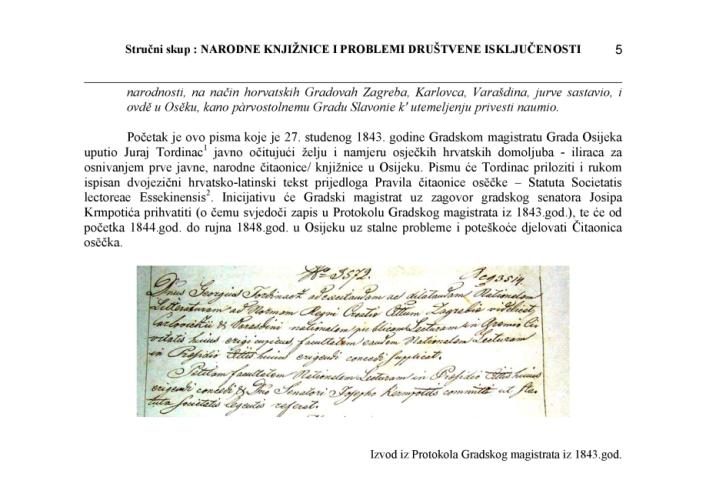 Stručni skup : NARODNE KNJIŽNICE I PROBLEMI DRUŠTVENE ISKLJUČENOSTI 5
narodnosti, na način horvatskih Gradovah Zagreba, Karlovca, Varašdina, jurve sastavio, i
ovdě u Osěku, kano pàrvostolnemu Gradu Slavonie k' utemeljenju privesti naumio.
Početak je ovo pisma koje je 27. studenog 1843. godine Gradskom magistratu Grada Osijeka
uputio Juraj Tordinac1 javno očitujući želju i namjeru osječkih hrvatskih domoljuba - iliraca za
osnivanjem prve javne, narodne čitaonice/ knjižnice u Osijeku. Pismu će Tordinac priloziti i rukom
ispisan dvojezični hrvatsko-latinski tekst prijedloga Pravila čitaonice osěčke – Statuta Societatis
lectoreae Essekinensis2. Inicijativu će Gradski magistrat uz zagovor gradskog senatora Josipa
Krmpotića prihvatiti (o čemu svjedoči zapis u Protokolu Gradskog magistrata iz 1843.god.), te će od
početka 1844.god. do rujna 1848.god. u Osijeku uz stalne probleme i poteškoće djelovati Čitaonica
osěčka.
No 3572.
Dnus Georgius Tordinacz ad dilatandam Nationalem
Litteraturam ad Normam Regni Zagrabia videlicet
Varasdini nationalem publicam Lecturam in Gremio Ci-
vitatis huius erigi cupiens, facultatem eandem Nationalem Lecturam
in Presidio huius erigendi concedi supplicat.
facultatem Nationalem Lecturam in Presidio huius
erigendi concedi & Dno Senatori Josepho committi ut Sta-
tuta Societatis legentis referat.
Izvod iz Protokola Gradskog magistrata iz 1843.god.